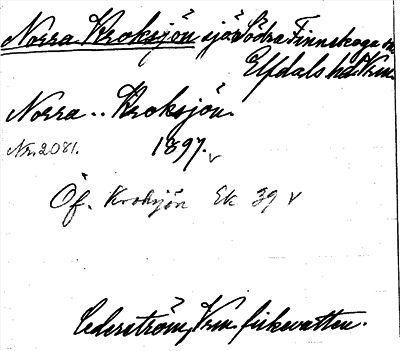 Norra Kroksjön sjö Södra Finnskoga sn
Elfdals hd. Vrm.
Norra .. Kroksjön.
Nr. 2081. 1897. v
Öf. Kroksjön Ek 39 v
Cederström, Vrm. fiskevatten.